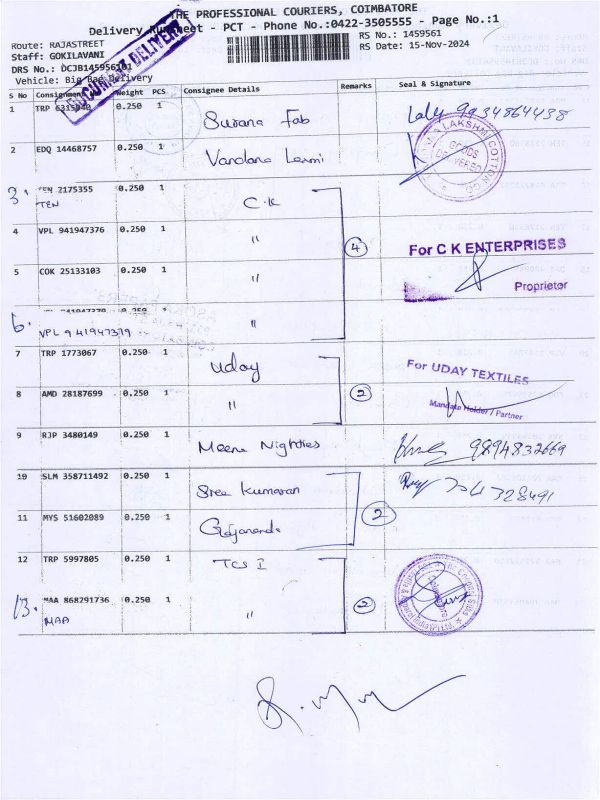 THE PROFESSIONAL COURIERS, COIMBATORE
Delivery Runsheet - PCT - Phone No.:0422-3505555 - Page No.:1
Route: RAJASTREET
RS No.: 1459561
Staff: GOKILAVANI
RS Date: 15-Nov-2024
DRS No.: DCJB145956101
Vehicle: Big Bag Delivery
DOCUMENT DELIVERY
S No Consignment Weight PCS Consignee Details Remarks Seal & Signature
1 TRP 0.250 1 Surana Fab Laly 9934864438
2 EDQ 14468757 0.250 1 Vandana Laxmi
LAKSHMI COTTON
GOODS DELIVERED
3. TEN 2175355 0.250 1 C.K
TEN
4 VPL 941947376 0.250 1 "
4
For C K ENTERPRISES
5 COK 25133103 0.250 1 "
Proprietor
6. 0.250 1 "
VPL 941947379
7 TRP 1773067 0.250 1 Uday
For UDAY TEXTILES
8 AMD 28187699 0.250 1 "
2
Mandate Holder / Partner
9 RJP 3480149 0.250 1 Meena Nighties 9894832669
10 SLM 358711492 0.250 1 Sree Kumaran
11 MYS 51602089 0.250 1 Gajananda
2
12 TRP 5997805 0.250 1 TCS I
13. MAA 868291736 0.250 1 "
MAA
2